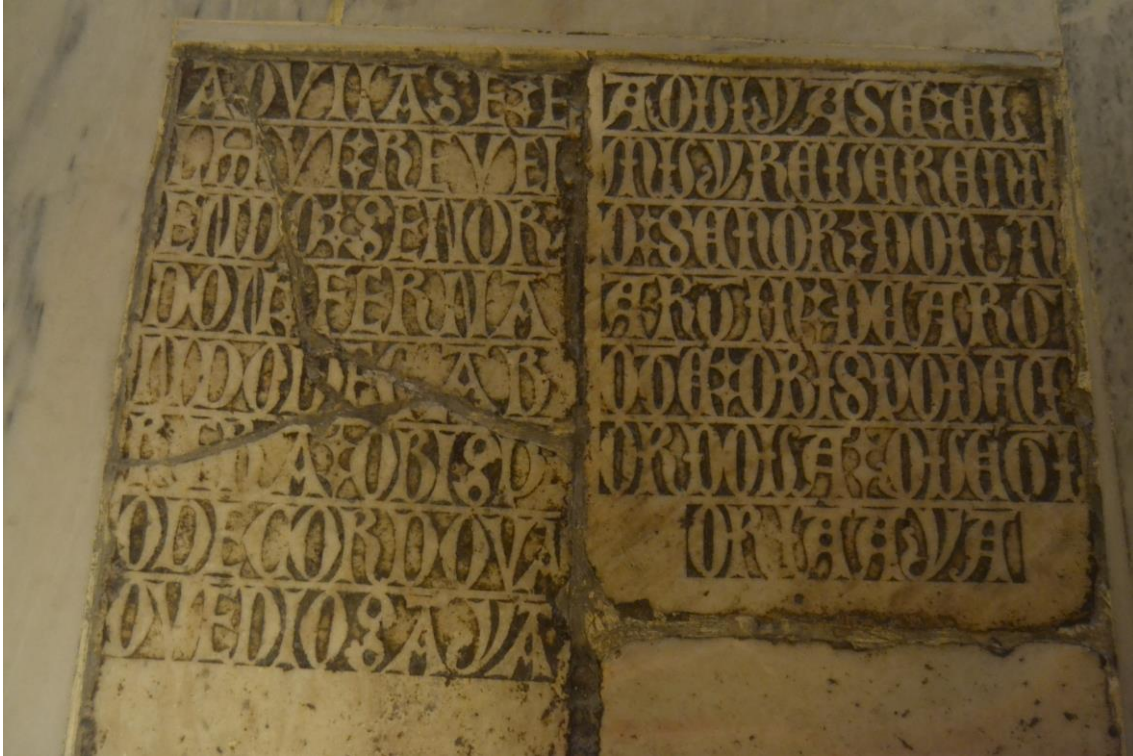 AQVI YASE: E
L MVI: REVER
ENDO: SENOR:
DON: FERNA
NDO DE CAB
RERA: OBISP
O DE CORDOVA
QVE DIOS AYA
AQVI YASE: EL
MUY REVEREND
O: SENOR: DON LA
OBISPO DE C
ORDOVA: QVE GL
ORIA AYA